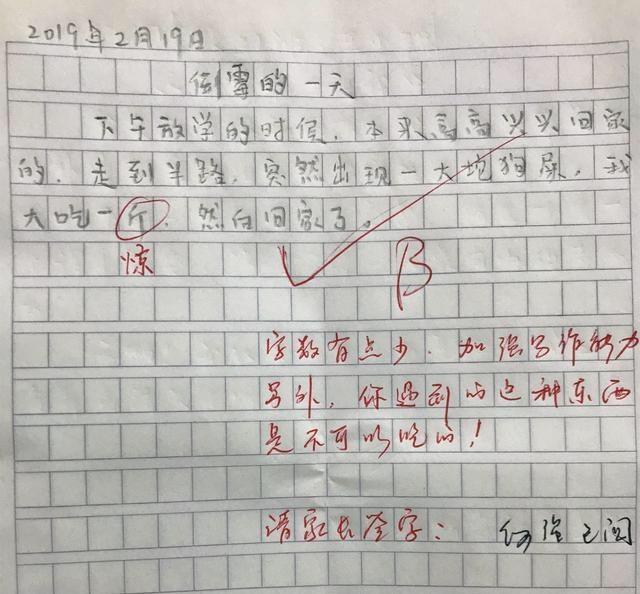 2019年2月19日
倒霉的一天
下午放学的时候，本来高高兴兴回家
的，走到半路，突然出现一大坨狗屎，我
大吃一斤，然后回家了。
惊
B
字数有点少，加强写作能力
另外，你遇到的这种东西
是不可以吃的！
请家长签字：
何强已阅